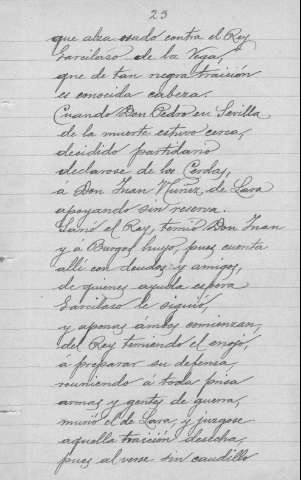 23
que alza osado contra el Rey
Garcilaso de la Vega,
que de tan negra traición
es conocida cabeza.
Cuando Don Pedro en Sevilla
de la muerte estuvo cerca,
decidido partidario
declarose de los Cerdas,
á Don Juan Nuñez de Lara
apoyando sin reserva.
Sanó el Rey, temió Don Juan
y á Burgos huyo, pues cuenta
allí con deudos y amigos,
de quienes ayuda espera
Garcilaso le siguió,
y apenas ámbos comienzan,
del Rey temiendo el enojo,
á preparar su defensa,
reuniendo á toda prisa
armas y gentes de guerra,
murió el de Lara, y juzgose
aquella traición desecha,
pues al verse sin caudillo